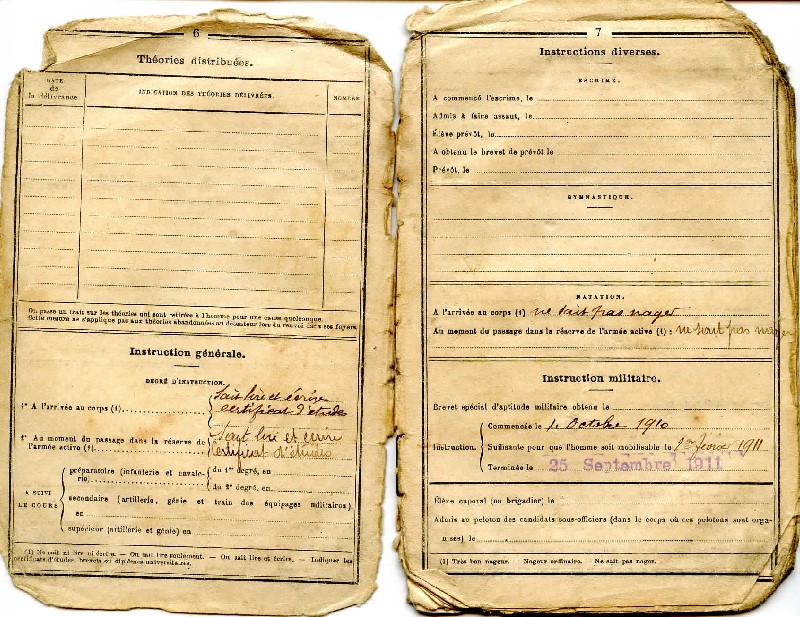 6
Théories distribuées.
DATE
de
la délivrance
INDICATION DES THÉORIES DÉLIVRÉES.
NOMBRE
On passe un trait sur les théories qui sont retirées à l'homme pour une cause quelconque.
Cette mesure ne s'applique pas aux théories abandonnées au détenteur lors du renvoi dans ses foyers.
Instruction générale.
DEGRÉ D'INSTRUCTION.
1° A l'arrivée au corps (1)
Sait lire et écrire
certificat d'études
2° Au moment du passage dans la réserve de
l'armée active (1)
Sait lire et écrire
certificat d'études
A SUIVI
LE COURS
préparatoire (infanterie et cavale-
rie)
du 1er degré, en
du 2e degré, en
secondaire (artillerie, génie et train des équipages militaires),
en
supérieur (artillerie et génie) en
(1) Ne sait ni lire ni écrire. — On sait lire seulement. — On sait lire et écrire. — Indiquer les
certificats d'études, brevets ou diplômes universitaires.
7
Instructions diverses.
ESCRIME.
A commencé l'escrime, le
Admis à faire assaut, le
Élève prévôt, le
A obtenu le brevet de prévôt le
Prévôt, le
GYMNASTIQUE.
NATATION.
A l'arrivée au corps (1) ne sait pas nager
Au moment du passage dans la réserve de l'armée active (1) : ne sait pas nager
Instruction militaire.
Brevet spécial d'aptitude militaire obtenu le
Instruction.
Commencée le 1er Octobre 1910
Suffisante pour que l'homme soit mobilisable le 1er février 1911
Terminée le 25 Septembre 1911
Élève caporal (ou brigadier) le
Admis au peloton des candidats sous-officiers (dans le corps où ces pelotons sont orga-
nisés) le
(1) Très bon nageur. Nageur ordinaire. Ne sait pas nager.